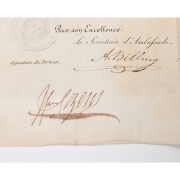 Par son Excellence
Le Secrétaire d'Ambassade
Signature du Porteur
A. Billing